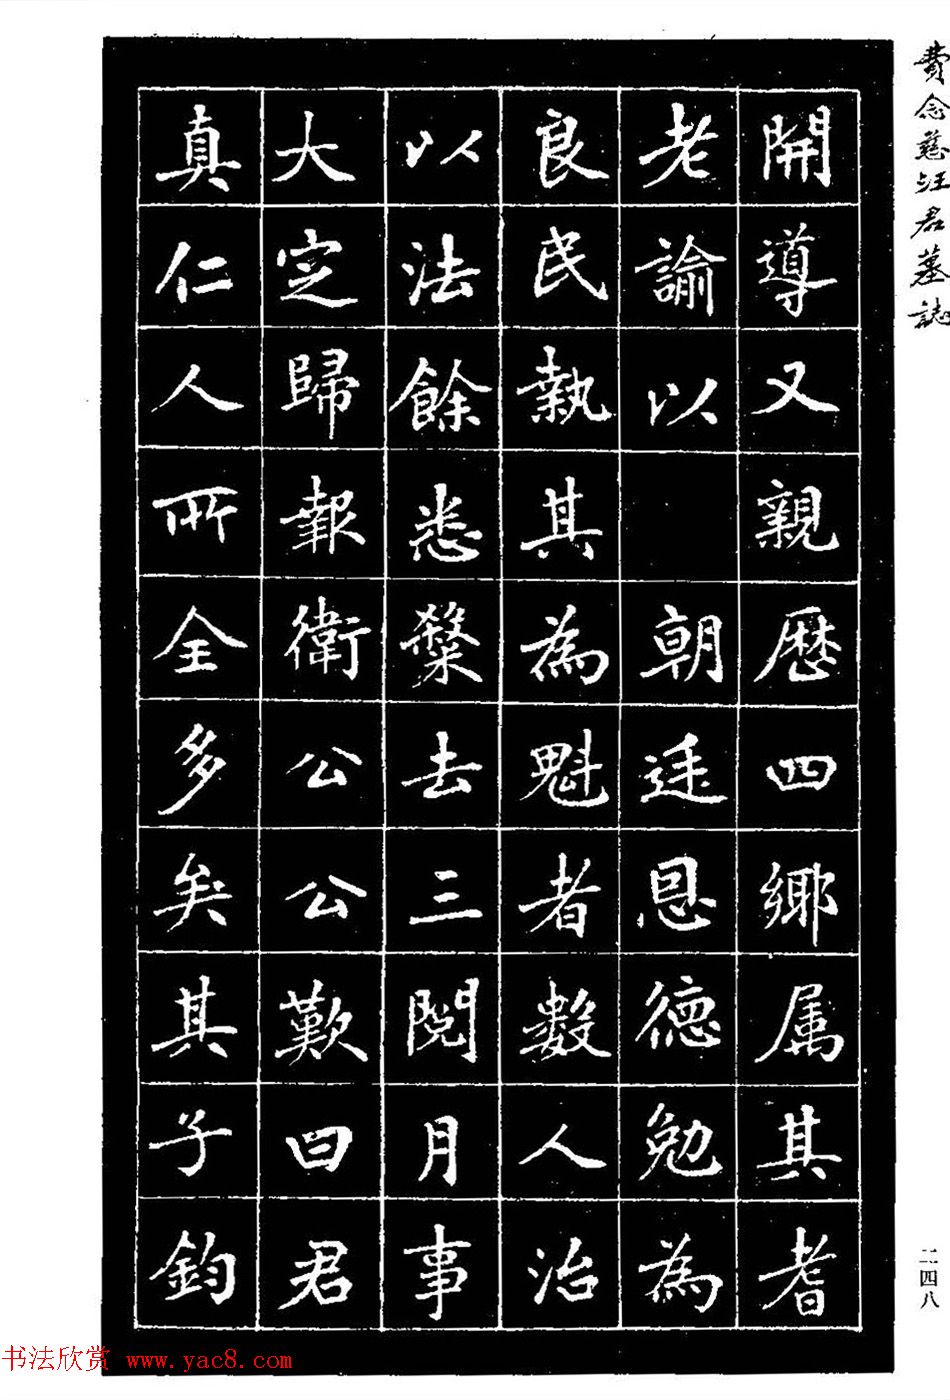 費念慈汪君墓誌
開導又親歷四鄉属其耆
老諭以朝廷恩德勉為
良民執其為魁者數人治
以法餘悉釋去三閱月事
大定歸報衛公公歎曰君
真仁人所全多矣其子鈞
二四八
书法欣赏 www.yac8.com